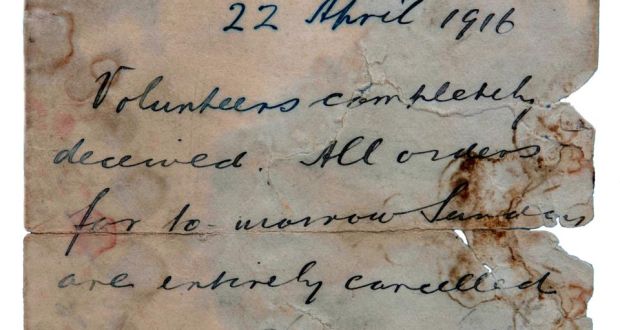 22 April 1916
Volunteers completely
deceived. All orders
for to-morrow Sunday
are entirely cancelled